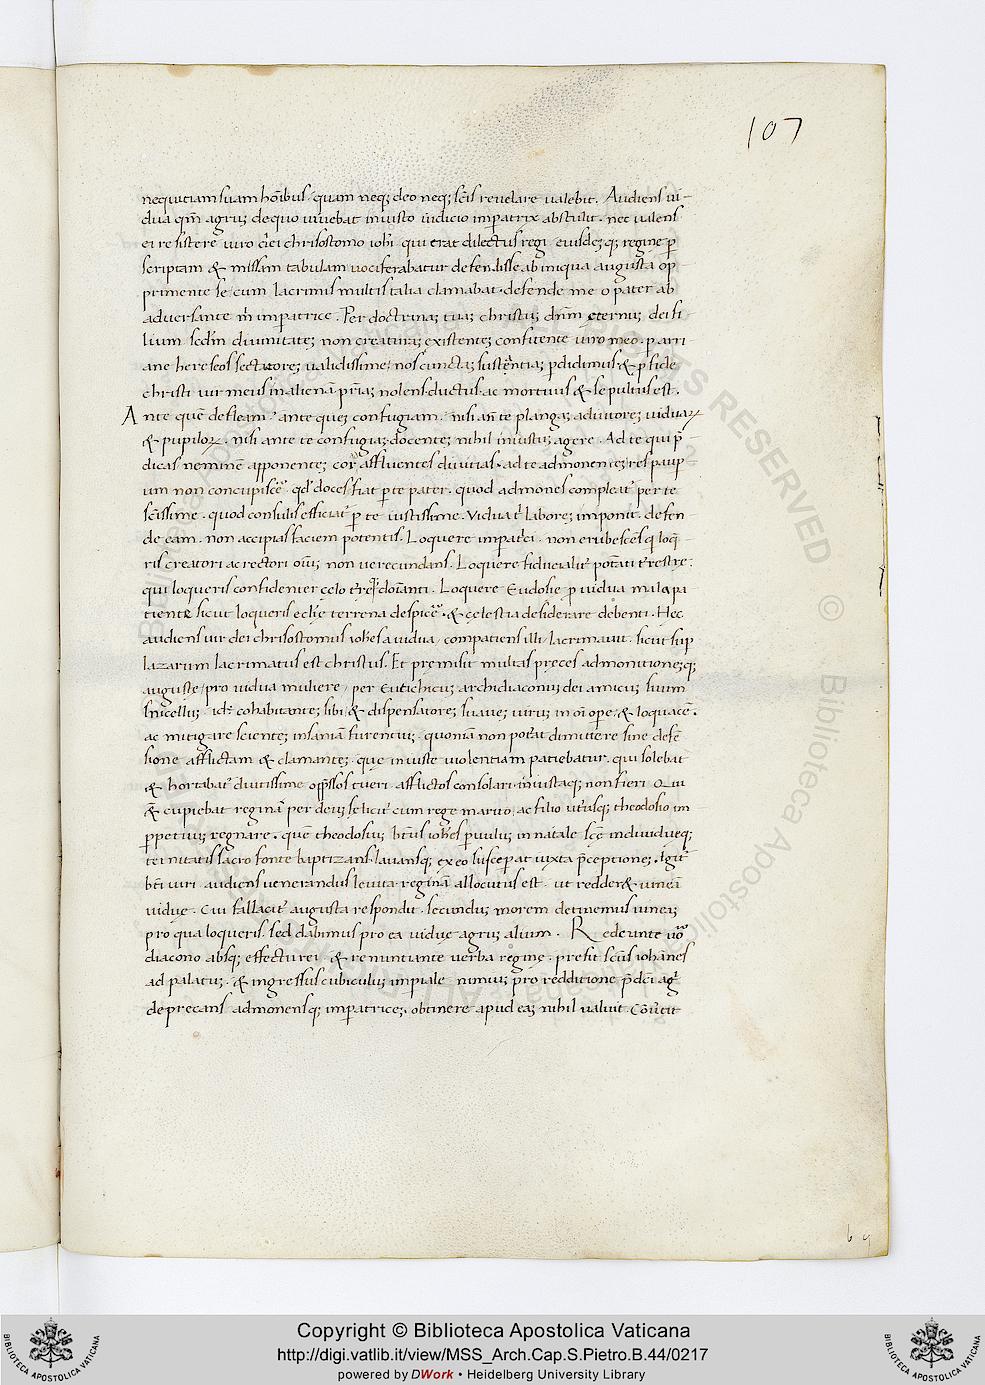 107
nequitiam suam ho͞ibus. quam neq; deo neq; sc͞is reuelare ualebit. Audiens ui-
dua qm͞ agrũ de quo uiuebat iniusto iudicio imp̲atrix abstulit. nec ualens
ei resistere uiro d͞ei chrisostomo ioh͞i qui erat dilectus regi eiusdẽq; regine p̲
scriptam & missam tabulam uociferabatur defendisse ab iniqua augusta op-
primente se cum lacrimis multis talia clamabat. defende me o pater ab
aduersante m͞ imp̲atrice. Per doctrinaȝ tuaȝ christuȝ dn͞m ęternuȝ dei fi
lium sed͞m diuinitateȝ non creaturaȝ existenteȝ confitente uiro meo. p̲ arri-
ane hereseos sectatoreȝ ualidissime, nos cunctaȝ substantiaȝ p̲didimus. & p̲ fide
christi uir meus in alienã pr͞iaȝ nolens ductus ac mortuus & sepultus est.
Ante quẽ defleam? ante queȝ confugiam. nisi an͞ te plangaȝ adiutoreȝ uiduaꝝ
& pupiloꝝ. nisi ante te confugiaȝ docenteȝ nihil iniustuȝ agere. Ad te qui p̄-
dicas neminẽ apponenteȝ cor affluentes diuitias. ad te admonenteȝ res paup̲-
um non concupisce͞. qd̕ doces fiat p̲ te pater. quod admones compleat͛ per te
sc͞issime. quod consulis efficiat͛ p̲ te iustissime. Viduat͛ laboreȝ imponit. defen-
de eam. non accipias faciem potentis. Loquere imp̲at͛ci. non erubescẽs q̕ loq̄-
ris creatori ac rectori om͞iũ non uerecundans. Loquere fiducialit͛ potẽti t͛restre.
qui loqueris confidenter celo t͛req̕ do͞ianti. Loquere Eudosie p̲ uidua male pa
tiente sicut loqueris ecl͞ie terrena despice͛. & cęlestia desiderare debenti. Hec
audiens uir dei chrisostomus ioh͞es a uidua, compatiens illi lacrimauit. sicut sup̲
lazarum lacrimatus est christus. Et premisit multas preces admonitioneȝq;
augustę, pro uidua muliere, per Eutichium archidiaconuȝ dei amicuȝ suum
sincellũ. idȝ cohabitanteȝ sibi. & dispensatoreȝ suaueȝ uirũ in o͞i ope. & loquacẽ.
ac mitigare scienteȝ insaniã furentiuȝ. quoniã non pot͛at dimittere sine defẽ
sione afflictam & clamanteȝ. quę iniuste uiolentiam patiebatur. qui solebat
& hortabat͛ diutissime opp̄ssos tueri. afflictos consolari. iniustaq; non fieri. Qui
& cupiebat reginã per deuȝ felicit͛ cum rege marito, ac filio ut͛usq; theodosio im
p̲petuuȝ regnare. quẽ theodosiuȝ bt͞us ioh͞es p̲uulũ in natale sc͞ę indiuiduęq;
t͛initatis sacro fonte baptizans. lauansq; ex eo suscep̲at iuxta p̄ceptioneȝ. Igit͛
bt͞i uiri audiens uenerandus leuita reginã allocutus est. ut redder& uineã
uiduę. Cui fallacit͛ augusta respondit. secunduȝ morem detinemus uineaȝ
pro qua loqueris. sed dabimus pro ea uiduę agrũ alium. Redeunte uo͞
diacono absq; effectu rei. & renuntiante uerba reginę. p̄esit sc͞us ioh͞anes
ad palatũ. & ingressus cubiculuȝ imp̲iale nimiuȝ pro redditione p̄dci ag͛
deprecans. admonensq; imp̲atriceȝ. obtinere apud eaȝ nihil ualuit. Cõu͛tit
Copyright © Biblioteca Apostolica Vaticana
http://digi.vatlib.it/view/MSS_Arch.Cap.S.Pietro.B.44/0217
powered by DWork • Heidelberg University Library